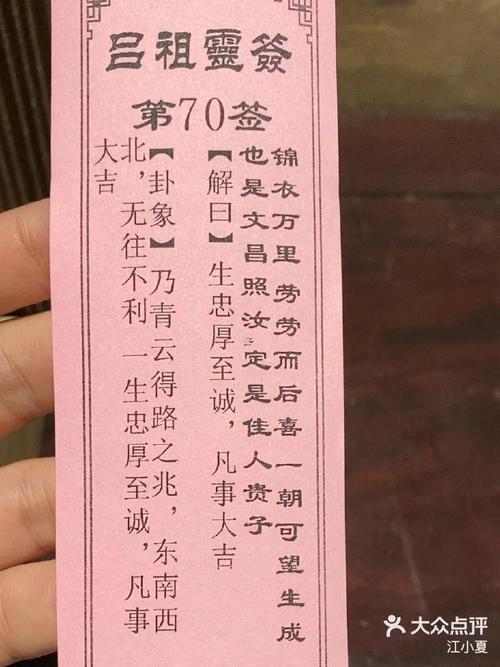 吕祖靈簽
第70签
锦衣万里劳劳而后喜一朝可望生成
也是文昌照汝定是佳人贵子
【解曰】生忠厚至诚，凡事大吉
【卦象】乃青云得路之兆，东南西
北，无往不利一生忠厚至诚，凡事
大吉
大众点评
江小夏